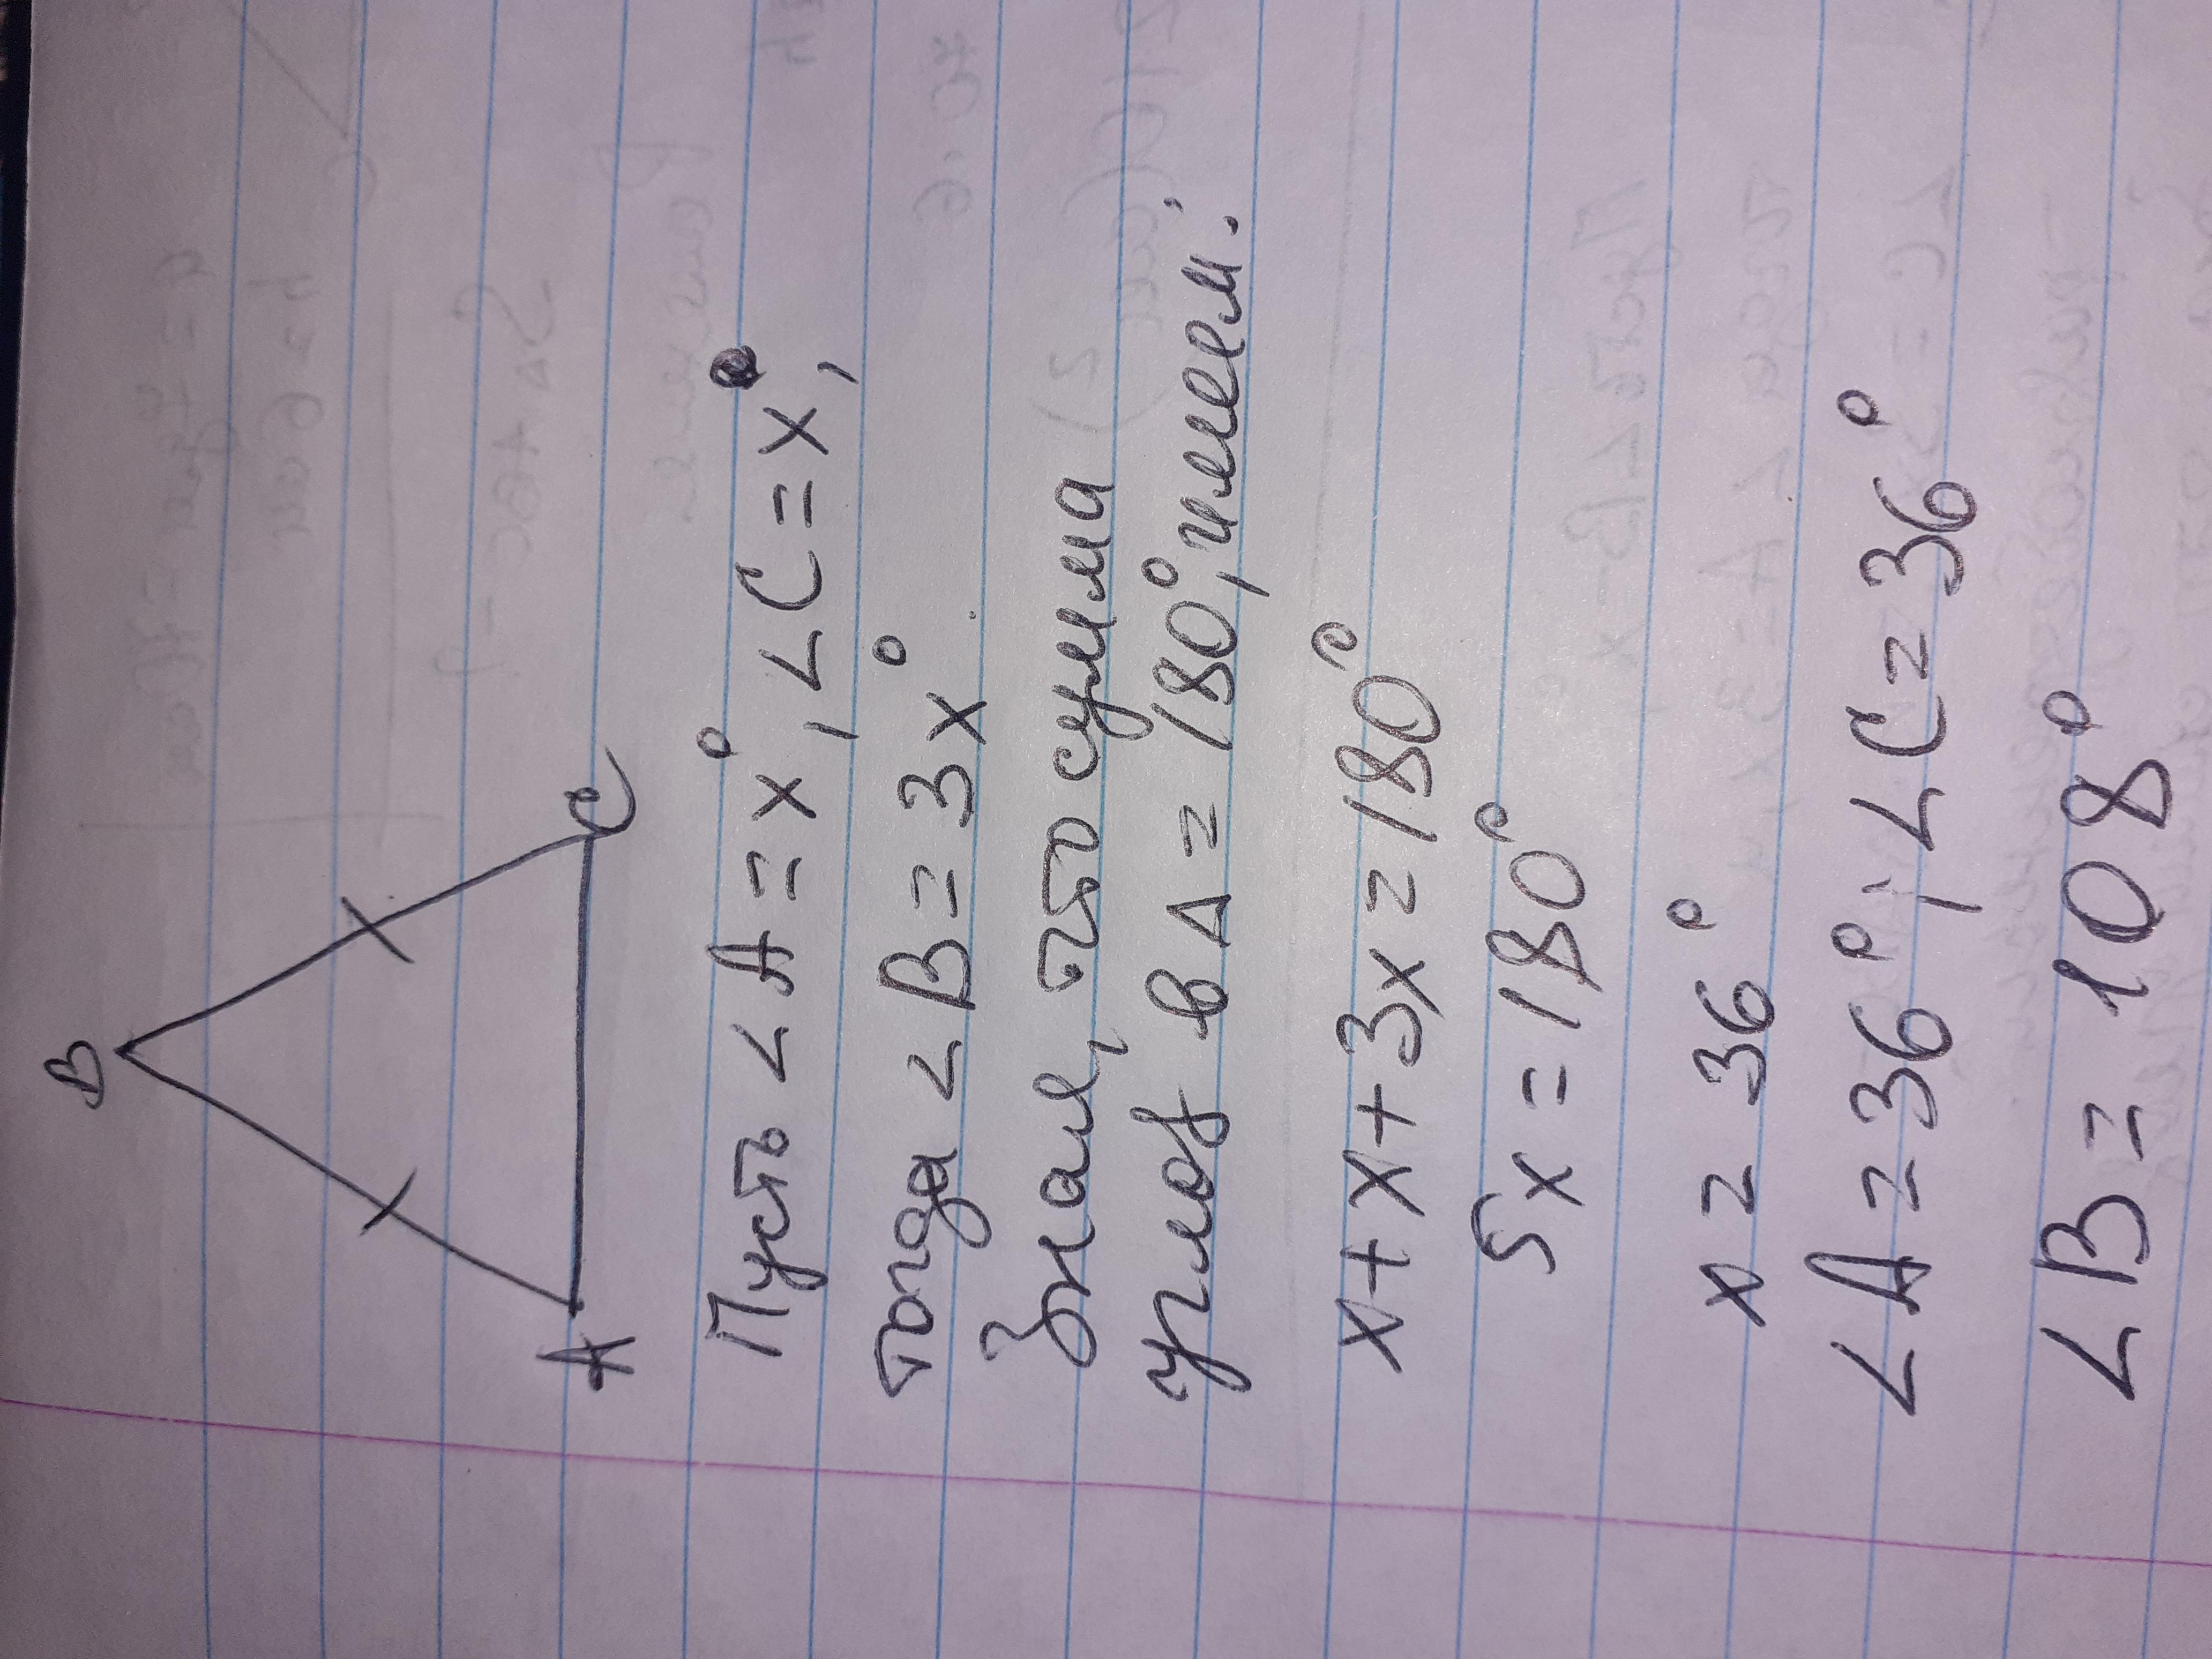 B
A C
Пусть ∠A = x°, ∠C = x°,
тогда ∠B = 3x°
Зная, что сумма
углов в Δ = 180°, имеем:
x + x + 3x = 180°
5x = 180°
x = 36°
∠A = 36°, ∠C = 36°
∠B = 108°